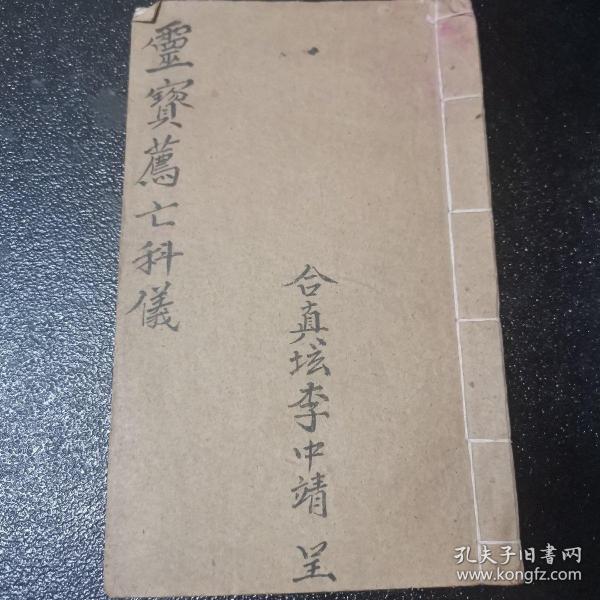 靈寳薦亡科儀
合真坛李中靖 呈
孔夫子旧書网
www.kongfz.com